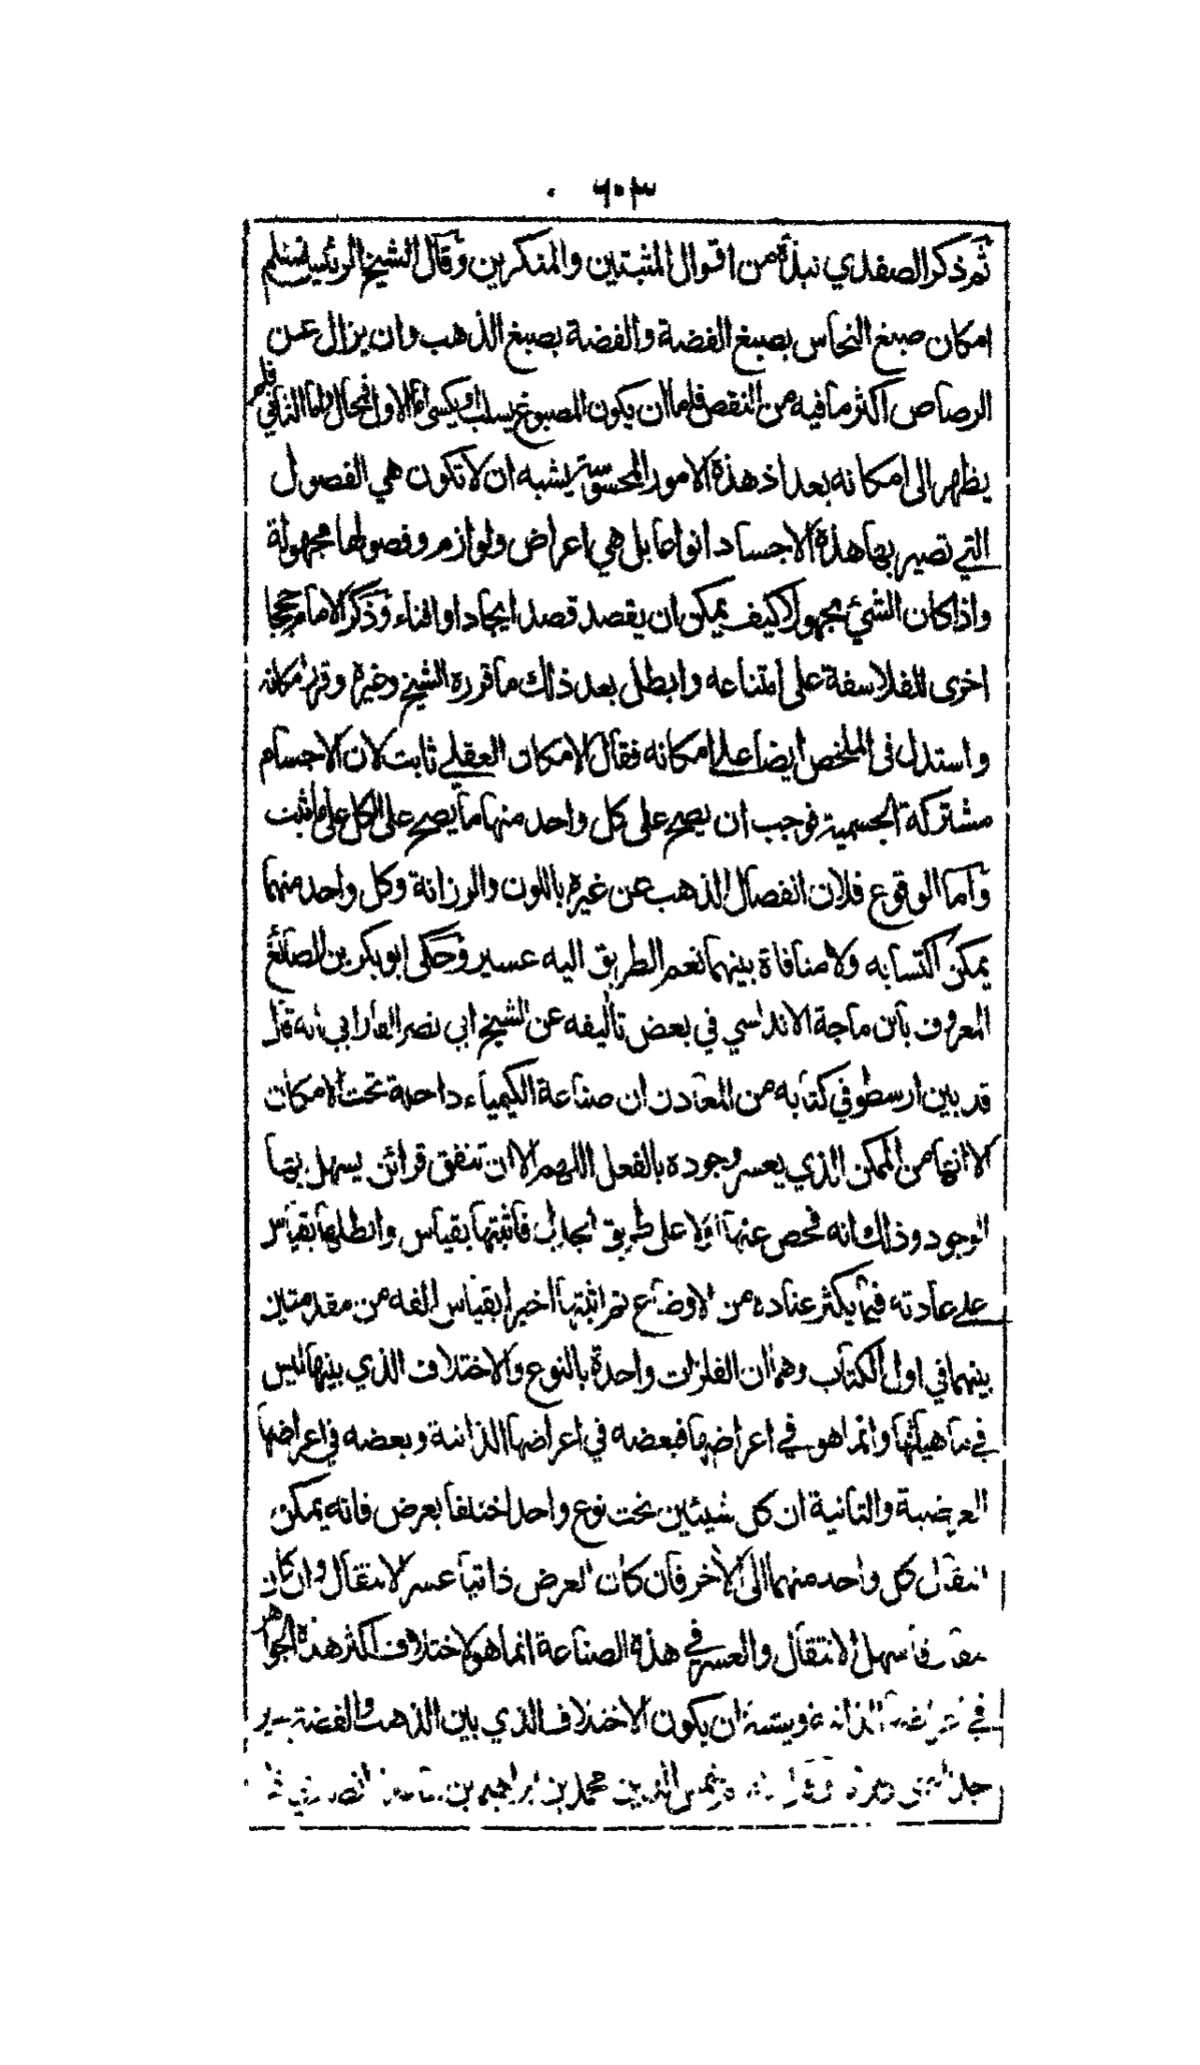 ٦٠٣
ثم ذكر الصفدي نبذة من اقوال المثبتين والمنكرين وقال الشيخ الرئيس نسلم
امكان صبغ النحاس بصبغ الفضة والفضة بصبغ الذهب وان يزال عن
الرصاص اكثر ما فيه من النقص فاما ان يكون المصبوغ يسلب ويكسى اما الاول فمحال واما الثاني فلم
يظهر الى امكانه بعد اذ هذه الامور المحسوسة يشبه ان لا تكون هي الفصول
التي تصير بها هذه الاجساد انواعا بل هي اعراض ولوازم وفصولها مجهولة
واذا كان الشيئ مجهولا كيف يمكن ان يقصد قصد ايجاد او افناء وذكر الامام حججا
اخرى للفلاسفة على امتناعه وابطل بعد ذلك ما قرره الشيخ وغيره وقرر امكانه
واستدل في الملخص ايضا على امكانه فقال الامكان العقلي ثابت لان الاجسام
مشتركة الجسمية فوجب ان يصح على كل واحد منها ما يصح على الكل على ما ثبت
واما الوقوع فلان انفصال الذهب عن غيره باللون والرزانة وكل واحد منهما
يمكن اكتسابه ولا منافاة بينهما نعم الطريق اليه عسير وحكى ابو بكر بن الصائغ
المعروف بابن ماجة الاندلسي في بعض تأليفه عن الشيخ ابي نصر الفارابي انه قال
قد بين ارسطو في كتابه من المعادن ان صناعة الكيمياء داخلة تحت الامكان
الا انها من الممكن الذي يعسر وجوده بالفعل اللهم الا ان تتفق قرائن يسهل بها
الوجود وذلك انه فحص عنها اولا على طريق الجدل فاثبتها بقياس وابطلها بقياس
على عادته فيما يكثر عناده من الاوضاع ثم اثبتها اخيرا بقياس الفه من مقدمتين
بينهما في اول الكتاب وهما ان الفلزات واحدة بالنوع والاختلاف الذي بينها ليس
في ماهياتها وانما هو في اعراضها فبعضه في اعراضها الذاتية وبعضه في اعراضها
العرضية والثانية ان كل شيئين تحت نوع واحد اختلفا بعرض فانه يمكن
انتقال كل واحد منهما الى الآخر فان كان العرض ذاتيا عسر الانتقال وان كان
مفارقا سهل الانتقال والعسر في هذه الصناعة انما هو لاختلاف اكثر هذه الجواهر
في اعراضها الذاتية ويشبه ان يكون الاختلاف الذي بين الذهب والفضة يسير
جدا شمس الدين محمد بن ابراهيم بن